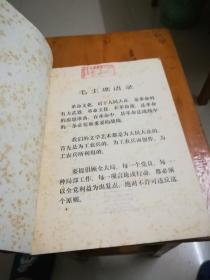 毛主席语录
革命文化，对于人民大众，是革命的
有力武器。革命文化，在革命前，是革命
的思想准备；在革命中，是革命总战线中
的一条必要和重要的战线。
我们的文学艺术都是为人民大众的，
首先是为工农兵的，为工农兵而创作，
为工农兵所利用的。
要提倡顾全大局。每一个党员，每一
种局部工作，每一项言论或行动，都必须
以全党利益为出发点，绝对不许可违反这
个原则。